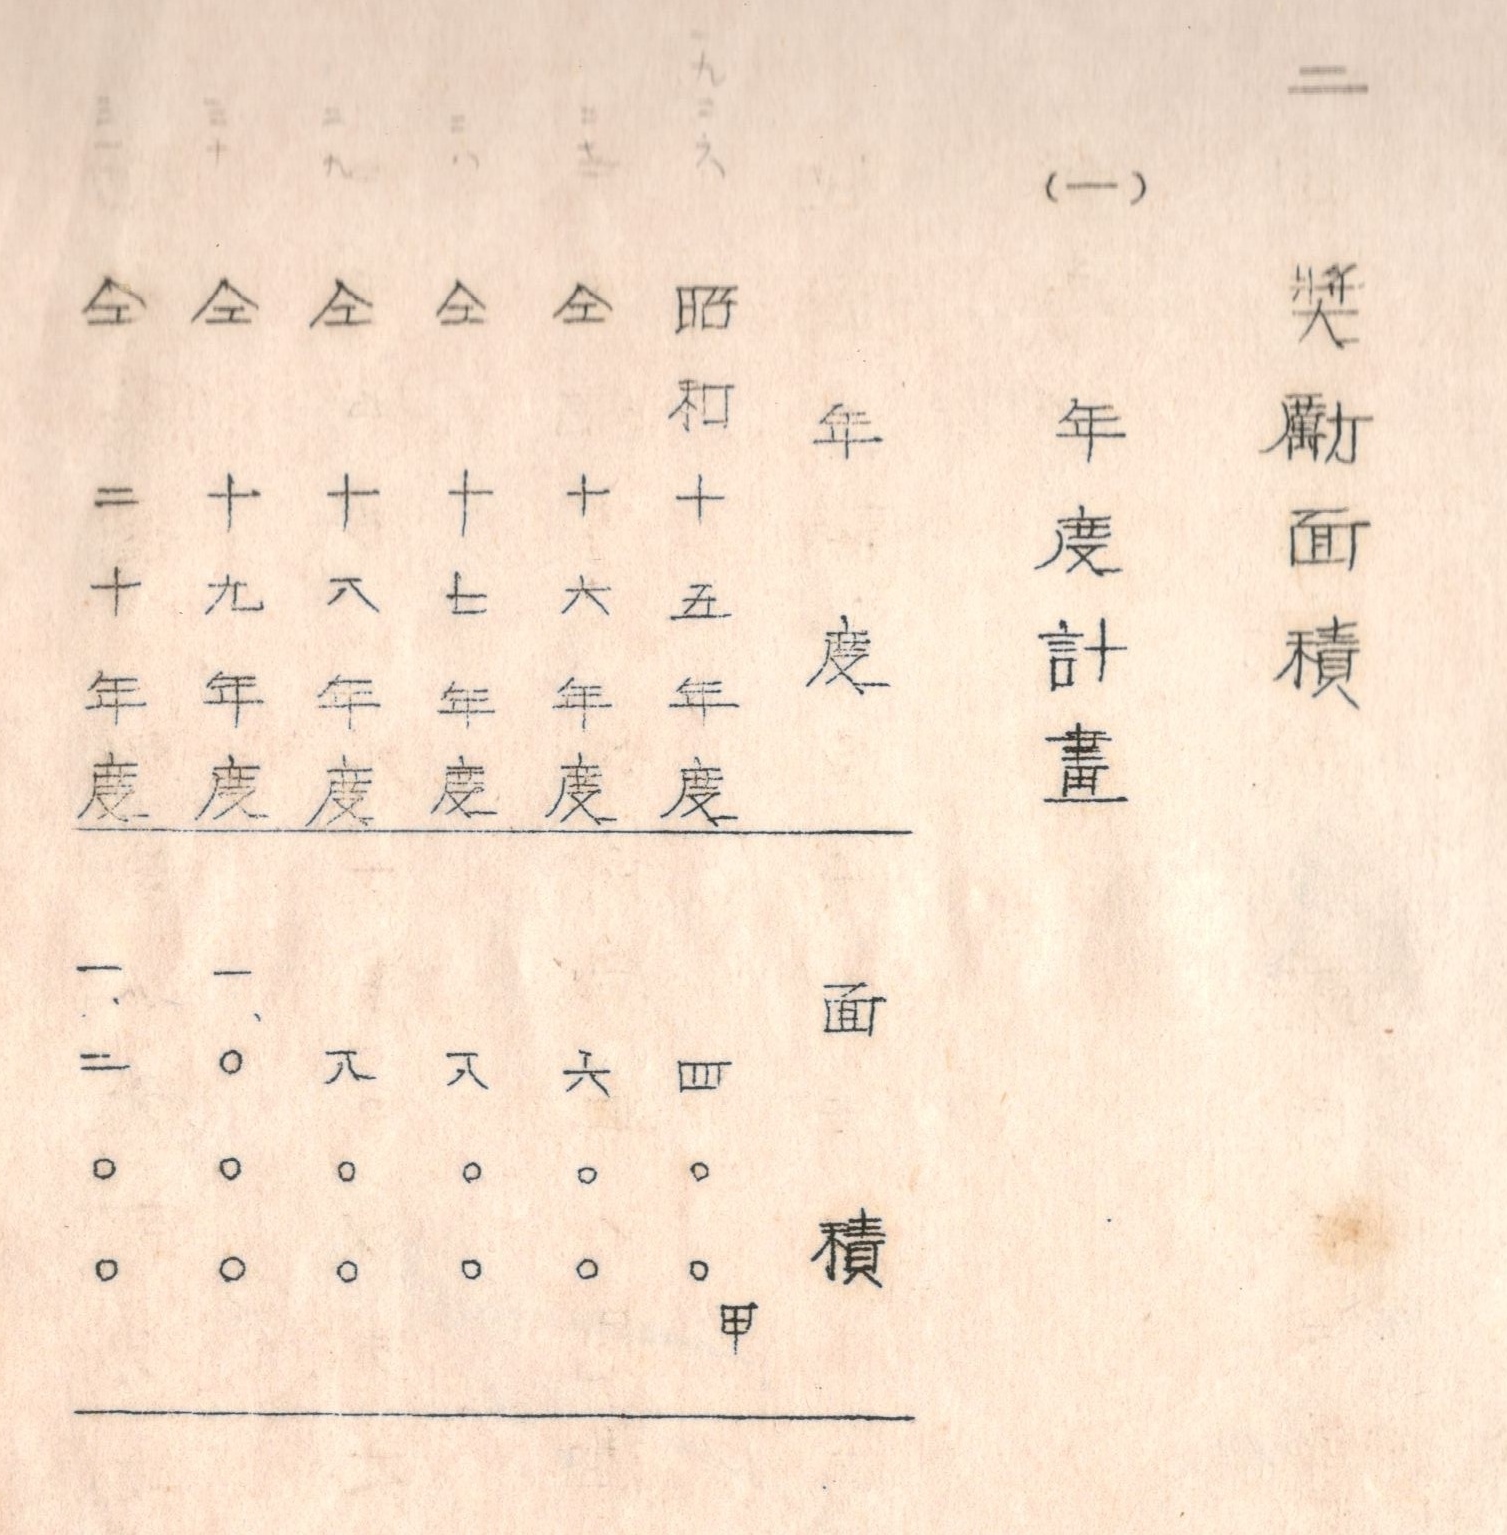 二 奬勵面積
(一) 年度計畫
年度 面積
昭和十五年度 四〇〇甲
仝 十六年度 六〇〇
仝 十七年度 八〇〇
仝 十八年度 八〇〇
仝 十九年度 一、〇〇〇
仝 二十年度 一、二〇〇